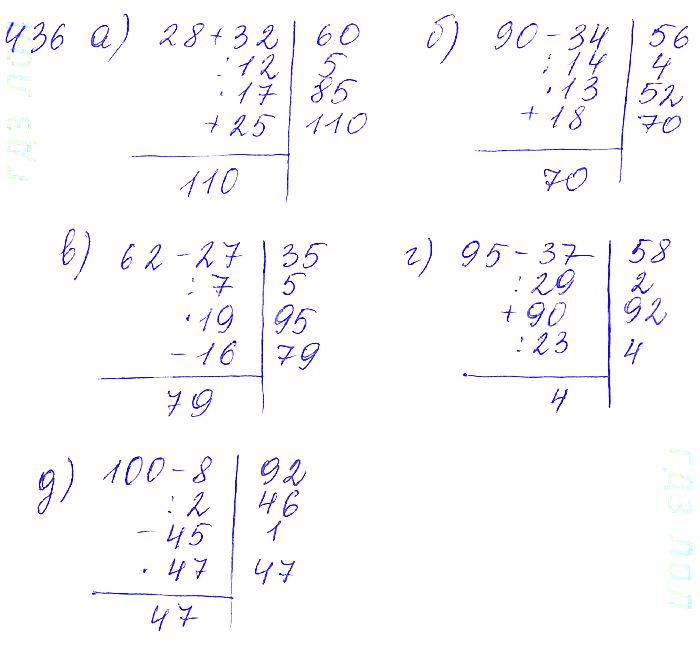 436 а) 28 + 32 | 60
: 12 | 5
· 17 | 85
+ 25 | 110
110
б) 90 - 34 | 56
: 14 | 4
· 13 | 52
+ 18 | 70
70
в) 62 - 27 | 35
: 7 | 5
· 19 | 95
- 16 | 79
79
г) 95 - 37 | 58
: 29 | 2
+ 90 | 92
: 23 | 4
4
д) 100 - 8 | 92
: 2 | 46
- 45 | 1
· 47 | 47
47